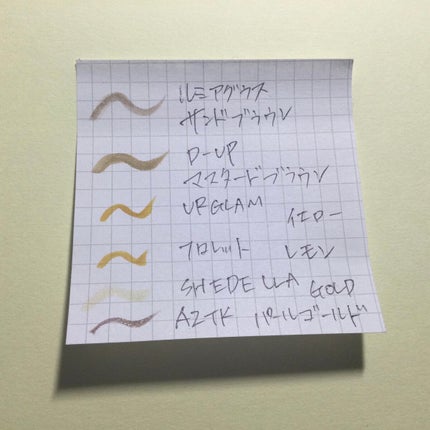 ルミアグラス
サンドブラウン
D-UP
マスタードブラウン
URGLAM イエロー
フロレット レモン
SHEDELLA GOLD
AZTK パールゴールド